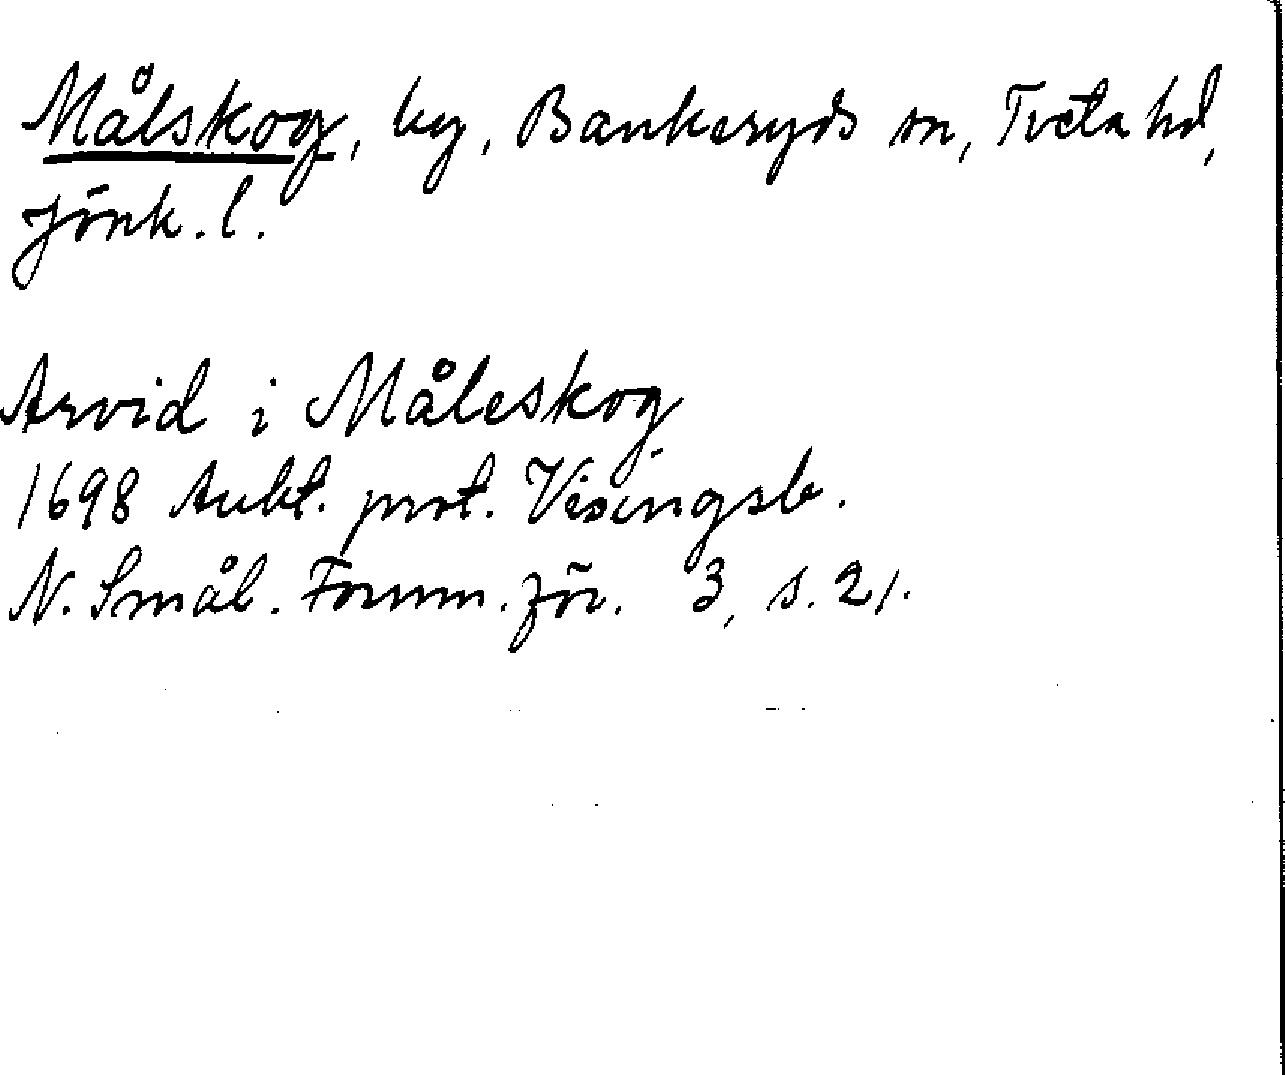 Målskog, by, Bankeryds sn, Tveta hd,
Jönk. l.
Arvid i Måleskog
1698 Aukt. prot. Visingsb.
N. Smål. Fornm. för. 3, s. 21.